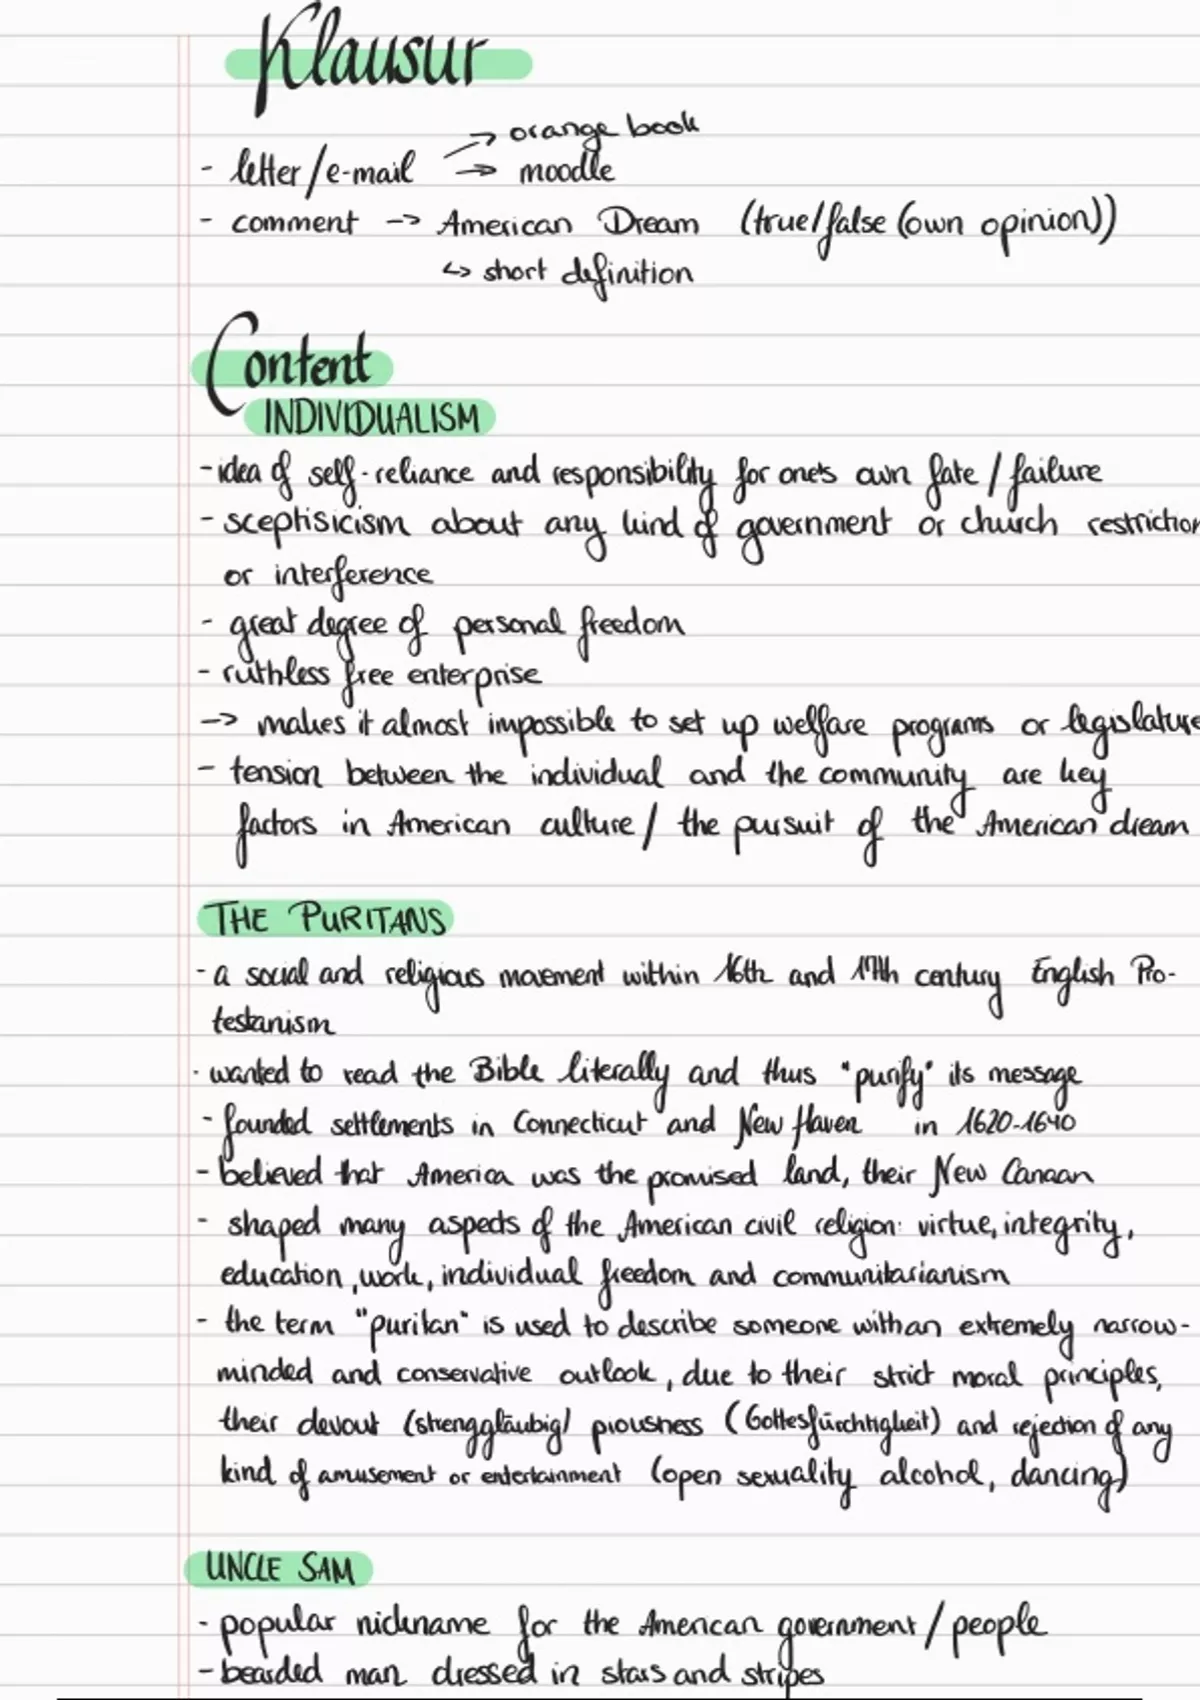 Klausur
- letter/e-mail → orange book
→ moodle
- comment → American Dream (true/false (own opinion))
↳ short definition
Content
INDIVIDUALISM
- idea of self-reliance and responsibility for one's own fate / failure
- sceptisicism about any kind of government or church restriction
or interference
- great degree of personal freedom
- ruthless free enterprise
→ makes it almost impossible to set up welfare programs or legislature
- tension between the individual and the community are key
factors in American culture / the pursuit of the American dream
THE PURITANS
- a social and religious movement within 16th and 17th century English Pro-
testanism
- wanted to read the Bible literally and thus "purify" its message
- founded settlements in Connecticut and New Haven in 1620-1640
- believed that America was the promised land, their New Canaan
- shaped many aspects of the American civil religion: virtue, integrity,
education, work, individual freedom and communitarianism
- the term "puritan" is used to describe someone with an extremely narrow-
minded and conservative outlook, due to their strict moral principles,
their devout (strenggläubig) piousness (Gottesfürchtigkeit) and rejection of any
kind of amusement or entertainment (open sexuality alcohol, dancing)
UNCLE SAM
- popular nickname for the American government / people
- bearded man dressed in stars and stripes